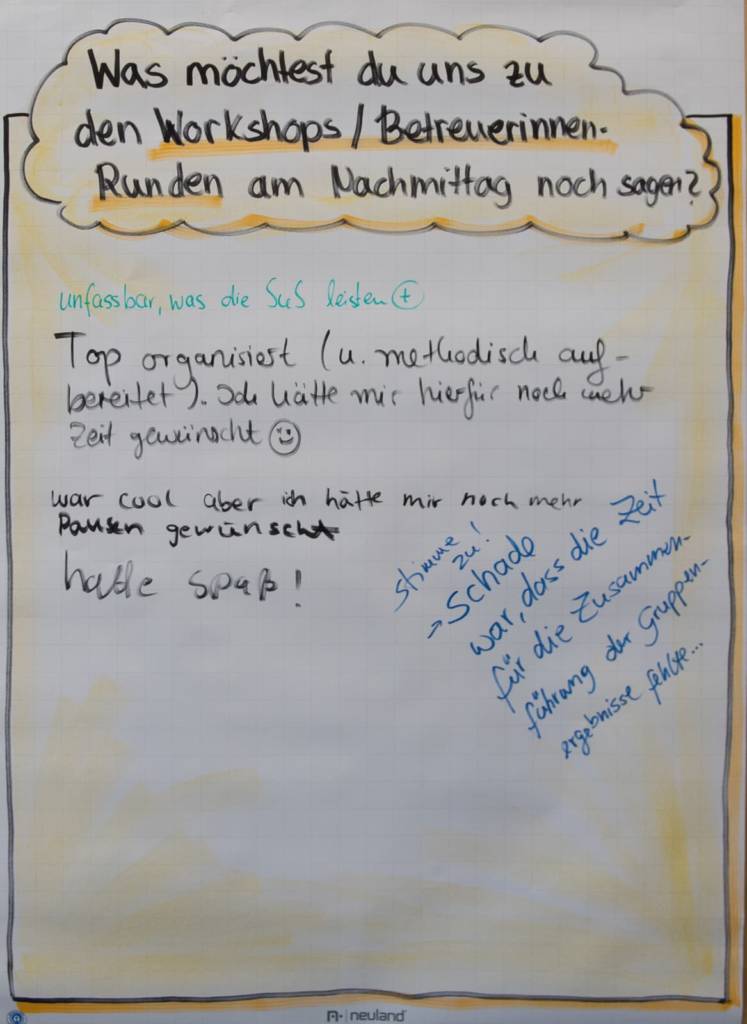 Was möchtest du uns zu
den Workshops / Betreuerinnen-
Runden am Nachmittag noch sagen?
unfassbar, was die SuS leisten +
Top organisiert (u. methodisch auf-
bereitet). Ich hätte mir hierfür noch mehr
Zeit gewünscht ☺
war cool aber ich hätte mir noch mehr
Pausen gewünscht
hatte Spaß!
stimme
zu!
→ Schade
war, dass die Zeit
für die Zusammen-
führung der Gruppen-
ergebnisse fehlte...
neuland